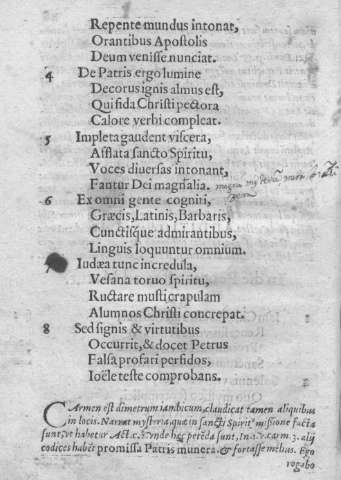 Repente mundus intonat,
Orantibus Apostolis
Deum venisse nunciat.
4 De Patris ergo lumine
Decorus ignis almus est,
Qui fida Christi pectora
Calore verbi compleat.
5 Impleta gaudent viscera,
Afflata sancto Spiritu,
Voces diuersas intonant,
Fantur Dei magnalia.
6 Ex omni gente cogniti,
Græcis, Latinis, Barbaris,
Cunctisque admirantibus,
Linguis loquuntur omnium.
7 Iudæa tunc incredula,
Vesana toruo spiritu,
Ructare musti crapulam
Alumnos Christi concrepat.
8 Sed signis & virtutibus
Occurrit, & docet Petrus
Falsa profari perfidos,
Ioële teste comprobans.
CArmen est dimetrum iambicum, claudicat tamen aliquibus
in locis. Narrat mysteria, quæ in sancti Spirit⁹ missione facta
sunt, vt habetur Act. 2. vnde hæc sunt, 3. alij
codices habēt promissa Patris munera, & fortasse melius. Ego
rogabo